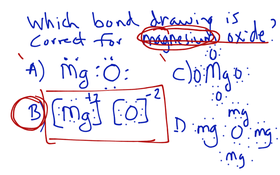 Which bond drawing is
correct for magnesium oxide?
A) Mg O
C) O Mg O
O
O
B) [Mg]+2 [O]-2
D mg O mg
mg
mg